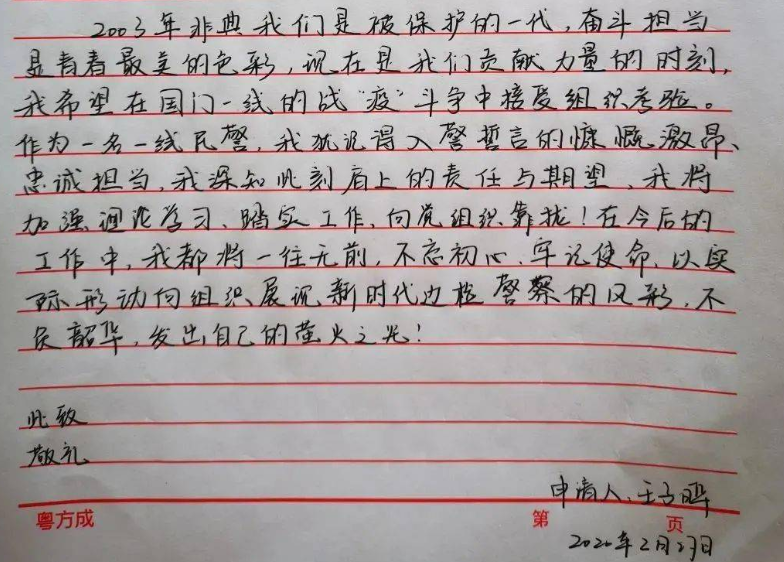 2003年非典我们是被保护的一代,奋斗担当
是青春最美的色彩,现在是我们贡献力量的时刻,
我希望在国门一线的战"疫"斗争中接受组织考验。
作为一名一线民警,我犹记得入警誓言的慷慨激昂、
忠诚担当,我深知此刻肩上的责任与期望、我将
加强理论学习、踏实工作、向党组织靠拢!在今后的
工作中,我都将一往无前,不忘初心、牢记使命,以实
际形动向组织展现新时代边检警察的风形,不
负韶华,发出自己的萤火之光!
此致
敬礼
申请人:王子晔
粤方成 第 页
2020年2月27日